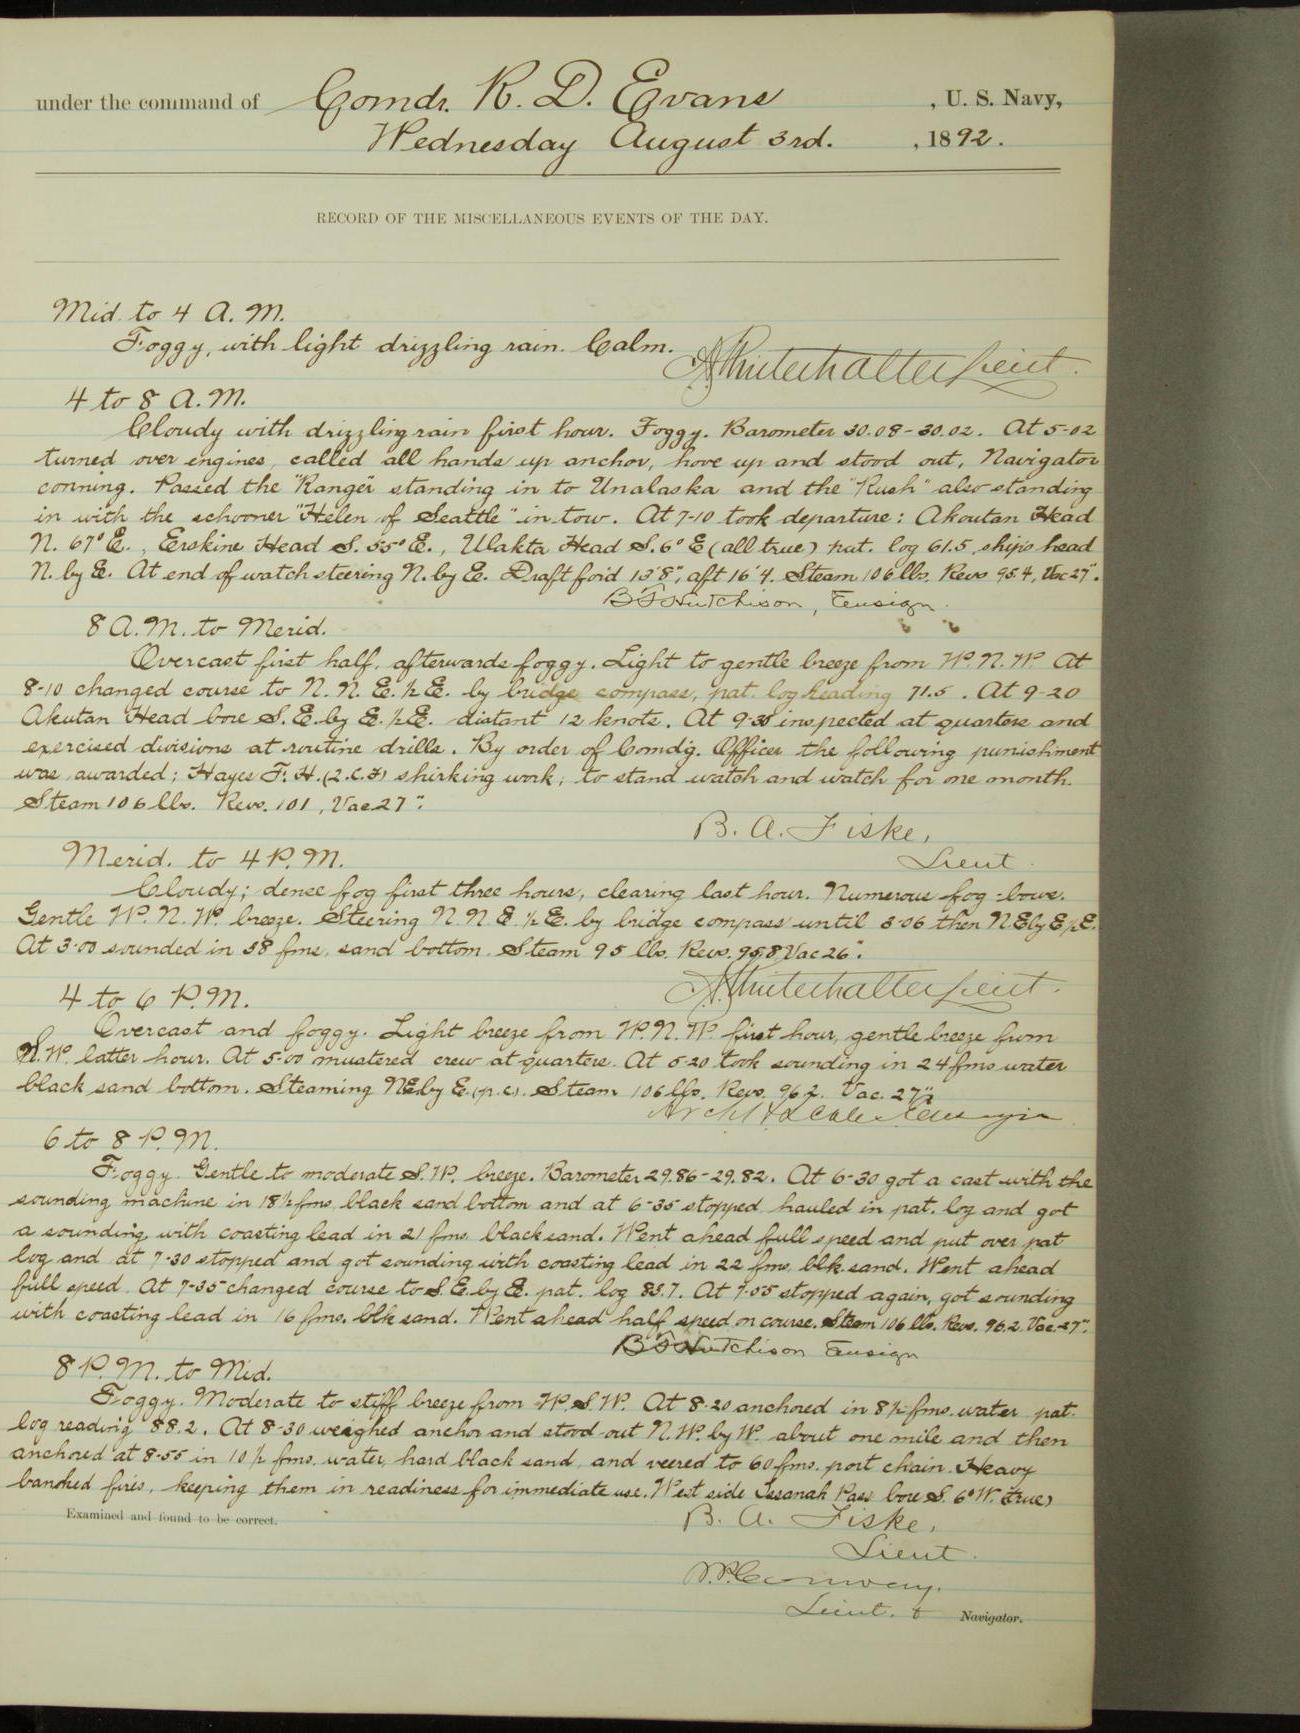 under the command of Comdr. R. D. Evans , U. S. Navy,
Wednesday August 3rd. , 1892.
RECORD OF THE MISCELLANEOUS EVENTS OF THE DAY.
Mid. to 4 A. M.
Foggy, with light drizzling rain. Calm.
AWinterhalter Lieut.
4 to 8 A. M.
Cloudy with drizzling rain first hour. Foggy. Barometer 30.08-30.02. At 5-02
turned over engines, called all hands up anchor, hove up and stood out, Navigator
conning. Passed the "Ranger" standing in to Unalaska and the "Rush" also standing
in with the schooner "Helen of Seattle" in tow. At 7-10 took departure: Akoutan Head
N. 67° E., Erskine Head S. 55° E., Ulakta Head S. 6° E (all true) pat. log 61.5, ships head
N. by E. At end of watch steering N. by E. Draft for'd 13'8", aft 16'4. Steam 106 lbs. Revs 95.4, Vac 27".
B F Hutchison, Ensign.
8 A. M. to Merid.
Overcast first half, afterwards foggy. Light to gentle breeze from W. N. W. At
8-10 changed course to N. N. E. ½ E. by bridge compass, pat. log heading 71.5. At 9-20
Akutan Head bore S. E. by E. ½ E. distant 12 knots. At 9-35 inspected at quarters and
exercised divisions at routine drills. By order of Comd'g. Officer the following punishment
was awarded; Hayes F. H. (2.C.F) shirking work; to stand watch and watch for one month.
Steam 106 lbs. Revs. 101, Vac 27".
B. A. Fiske,
Lieut.
Merid. to 4 P. M.
Cloudy; dense fog first three hours, clearing last hour. Numerous fog-bows.
Gentle W. N. W. breeze. Steering N. N E. ½ E. by bridge compass until 3-06 then N.E by E ½ E.
At 3-00 sounded in 58 fms, sand bottom. Steam 95 lbs. Revs. 95.8 Vac 26".
AWinterhalter Lieut.
4 to 6 P. M.
Overcast and foggy. Light breeze from W. N. W. first hour, gentle breeze from
N. W. latter hour. At 5-00 mustered crew at quarters. At 5-20 took sounding in 24 fms water
black sand bottom. Steaming NE by E. (p.c). Steam 106 lbs. Revs. 96.2. Vac. 27"
Arch H Scales Ensign
6 to 8 P. M.
Foggy. Gentle to moderate S. W. breeze. Barometer 29.86-29.82. At 6-30 got a cast with the
sounding machine in 18½ fms, black sand bottom and at 6-35 stopped, hauled in pat. log and got
a sounding with coasting lead in 21 fms. black sand. Went ahead full speed and put over pat
log and at 7-30 stopped and got sounding with coasting lead in 22 fms. blk. sand. Went ahead
full speed. At 7-35 changed course to S. E. by E. pat. log 83.7. At 7-55 stopped again, got sounding
with coasting lead in 16 fms. blk sand. Went ahead half speed on course. Steam 106 lbs. Revs. 96.2. Vac. 27".
B F Hutchison Ensign
8 P. M. to Mid.
Foggy. Moderate to stiff breeze from W. S. W. At 8-20 anchored in 8½ fms. water pat.
log reading 88.2. At 8-30 weighed anchor and stood out N. W. by W. about one mile and then
anchored at 8-55 in 10½ fms. water, hard black sand, and veered to 60 fms. port chain. Heavy
banked fires, keeping them in readiness for immediate use. West side Issanak Pass bore S. 6° W. (true)
B. A. Fiske,
Lieut.
Examined and found to be correct.
Conway,
Lieut. & Navigator.